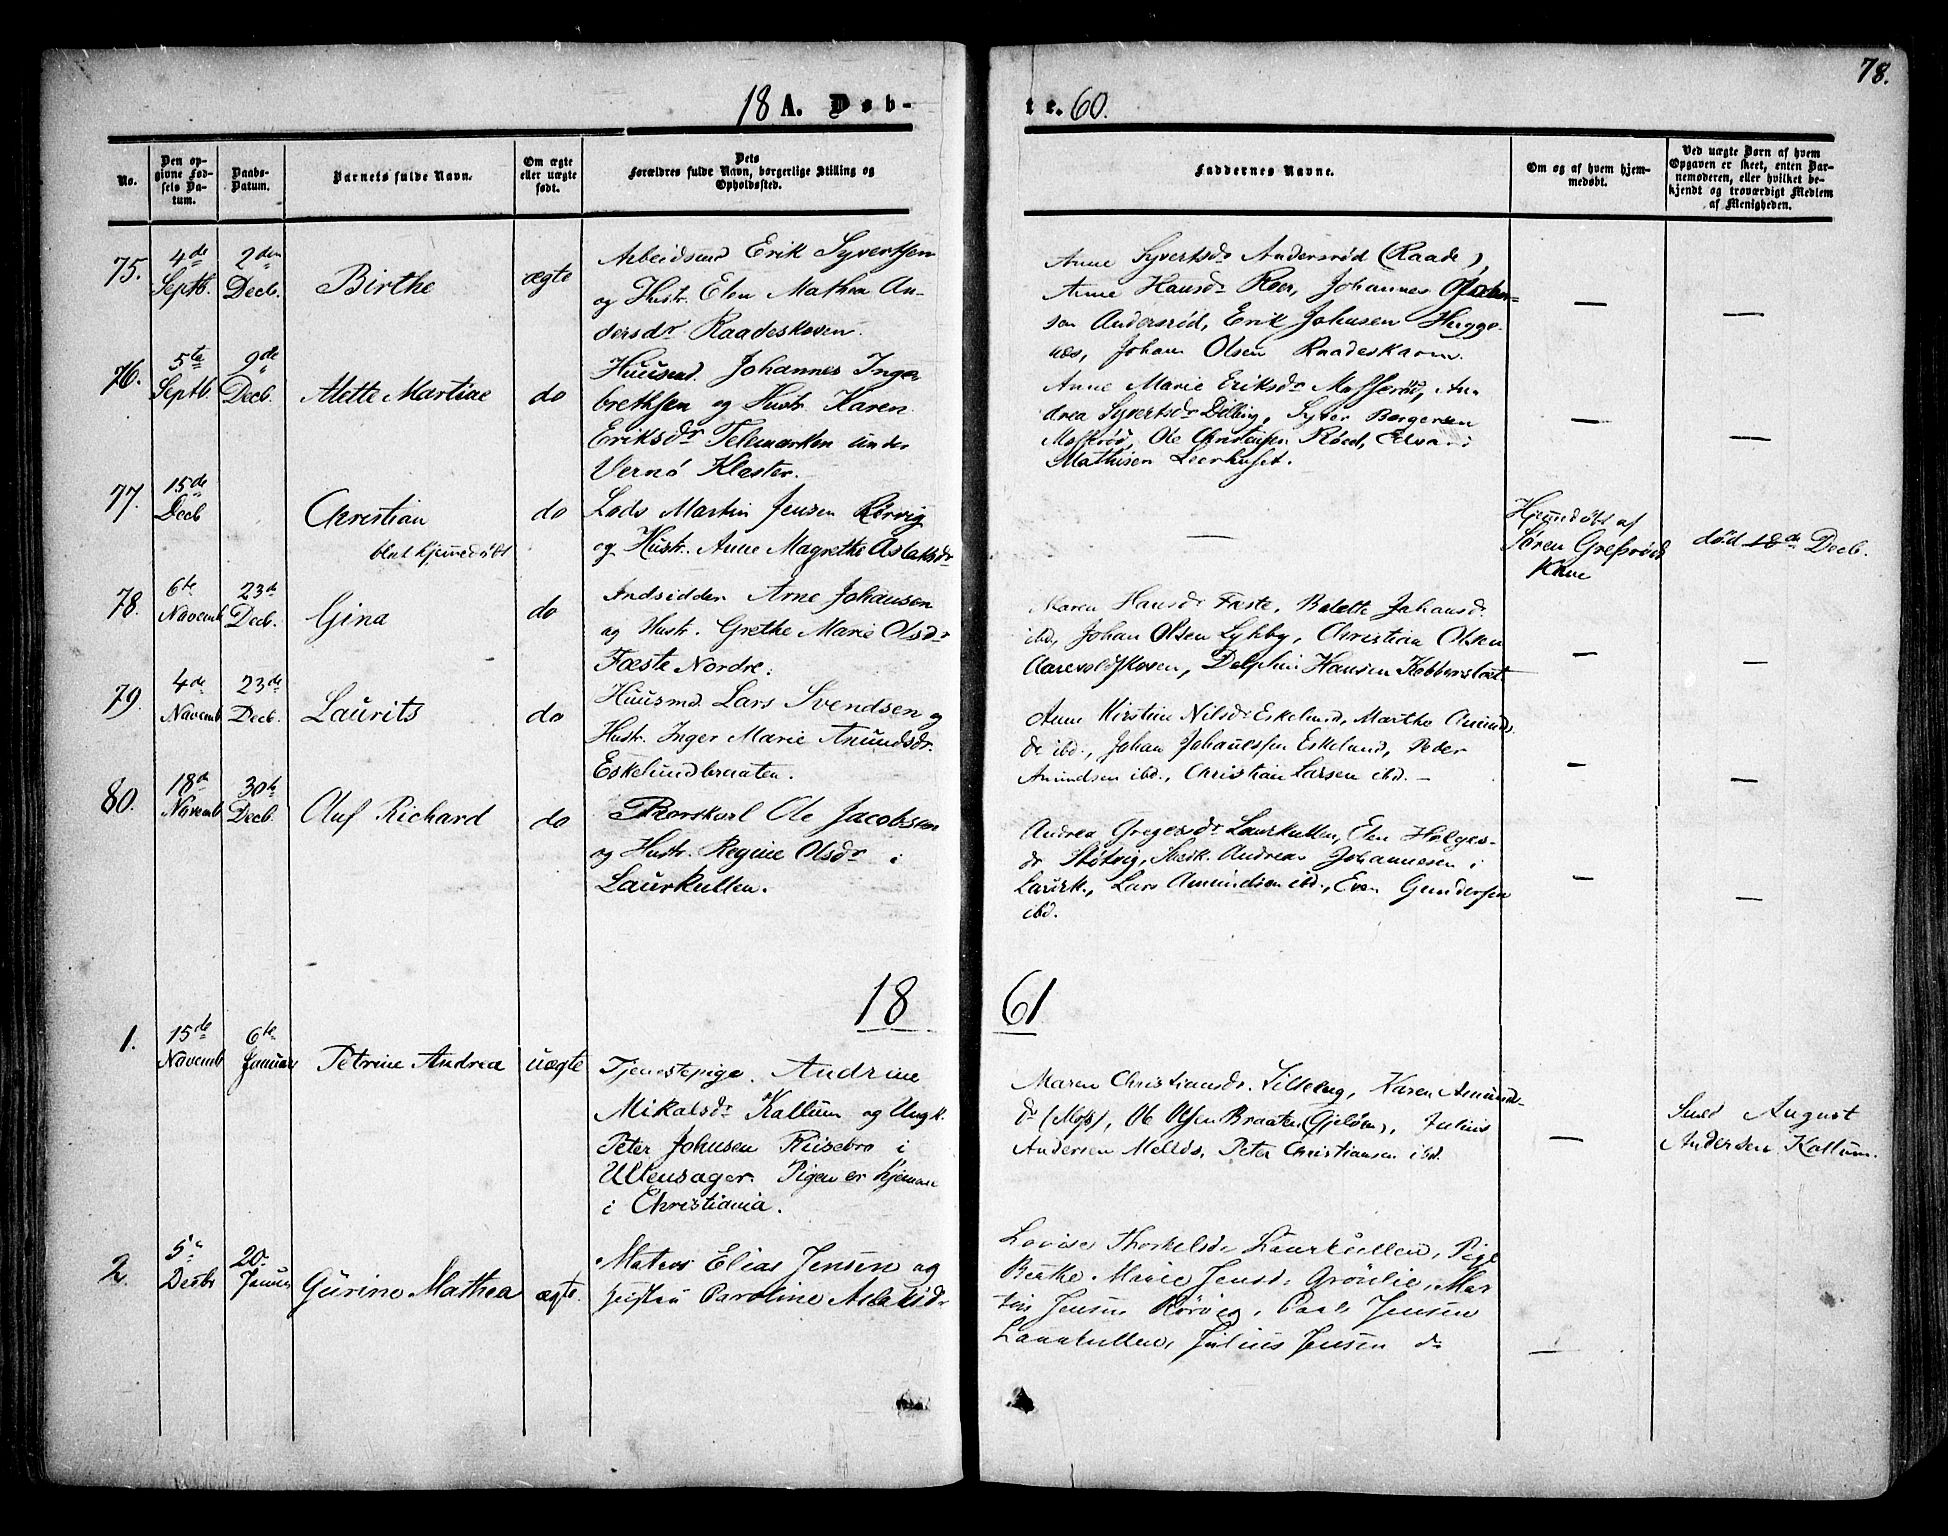 78.
18 A. Døb-
te. 60.
No.
Den op-
givne Fød-
sels Da-
tum.
Daabs-
Datum.
Barnets fulde Navn.
Om ægte
eller uægte
født.
Dets
Forældres fulde Navn, borgerlige Stilling og
Opholdssted.
Faddernes Navne.
Om og af hvem hjem-
medøbt.
Ved uægte Børn af hvem
Opgaven er skeet, enten Bar-
nemoderen, eller hvilket be-
kjendt og troværdigt Medlem
af Menigheden.
75.
4de
Septb.
2den
Decb.
Birthe
ægte
Arbeidsmd Erik Syvertsen
og Hustr. Elen Mathea An-
dersdr Raadeskoven.
Anne Syvertsdr Andersrød (Raade),
Anne Hansdr Roer, Johannes
sen Andersrød, Erik Johnsen Hugge-
næs, Johan Olsen Raadeskaven.
—
—
76.
5te
Septb.
9de
Decb.
Alette Martine
do
Huusmd. Johannes Inge-
brethsen og Hustr. Karen
Eriksdr Telemarken under
Vernø Kloster.
Anne Marie Eriksdr Mosserød, An-
drea Syvertsdr Dilling, Syver Borgersen
Mosserød, Ole Christensen Røed,
Mathisen Leerhuset.
—
—
77.
15de
Decb
Christian
blot hjemmedøbt
do
Lods Martin Jensen Rørvig
og Hustr. Anne Magrethe Aslaksdr
—
Hjemmedøbt af
Søren Gresrøds
Kone
død 18de Decb.
78.
6te
Novemb
23de
Decb.
Gina
do
Indsidder Arne Johansen
og Hustr. Grethe Marie Olsdr
Fæste Nordre.
Maren Hansdr Fæste, Bolette Johansdr
ibd, Johan Olsen Lykby, Christian Olsen
Aarevoldskoven, Delphin Hansen Kobberslaat
—
—
79.
4de
Novemb
23de
Decb.
Laurits
do
Huusmd. Lars Svendsen og
Hustr. Inger Marie Anundsdr.
Eskelundbraaten.
Anne Kirstine Nilsdr Eskelund, Marthe Amunds
dr ibd., Johan Johannessen Eskelund, Peder
Amundsen ibd., Christian Larsen ibd. —
—
—
80.
18de
Novemb
30te
Decb.
Oluf Richard
do
Ole Jacobsen
og Hustr. Regine Olsdr i
Laurkullen.
Andrea Gregersdr Laurkullen, Elen Holges-
dr Støtvig, Andreas Johannesen i
Laurk., Lars Amundsen ibd., Even Gundersen
ibd.
—
—
18 61
1.
15de
Novemb
6te
Januar
Petrine Andrea
uægte
Tjenestepige Andrine
Mikalsdr Kallum og Ungk.
Peter Johnsen Riisebro i
Ullensager. Pigen er hjemme
i Christiania.
Maren Christiansdr. Lilleeng, Karen Amunds-
dr (Moss), Ole Olsen Braaten (Gjeløen), Julius
Andersen Melløs, Peter Christiansen ibd.
—
Smed August
Andersen Kallum.
2.
5te
Decbr
20.
Januar
Gurine Mathea
ægte.
Matros Elias Jensen og
hustru Caroline Aslaksdr
Lovise Thorkelsdr Laurkullen, Pige
Berthe Marie Jensdr Grønlie, Mar
tin Jensen Rørvig, Carl Jensen
Laurkullen, Julius Jensen do
—